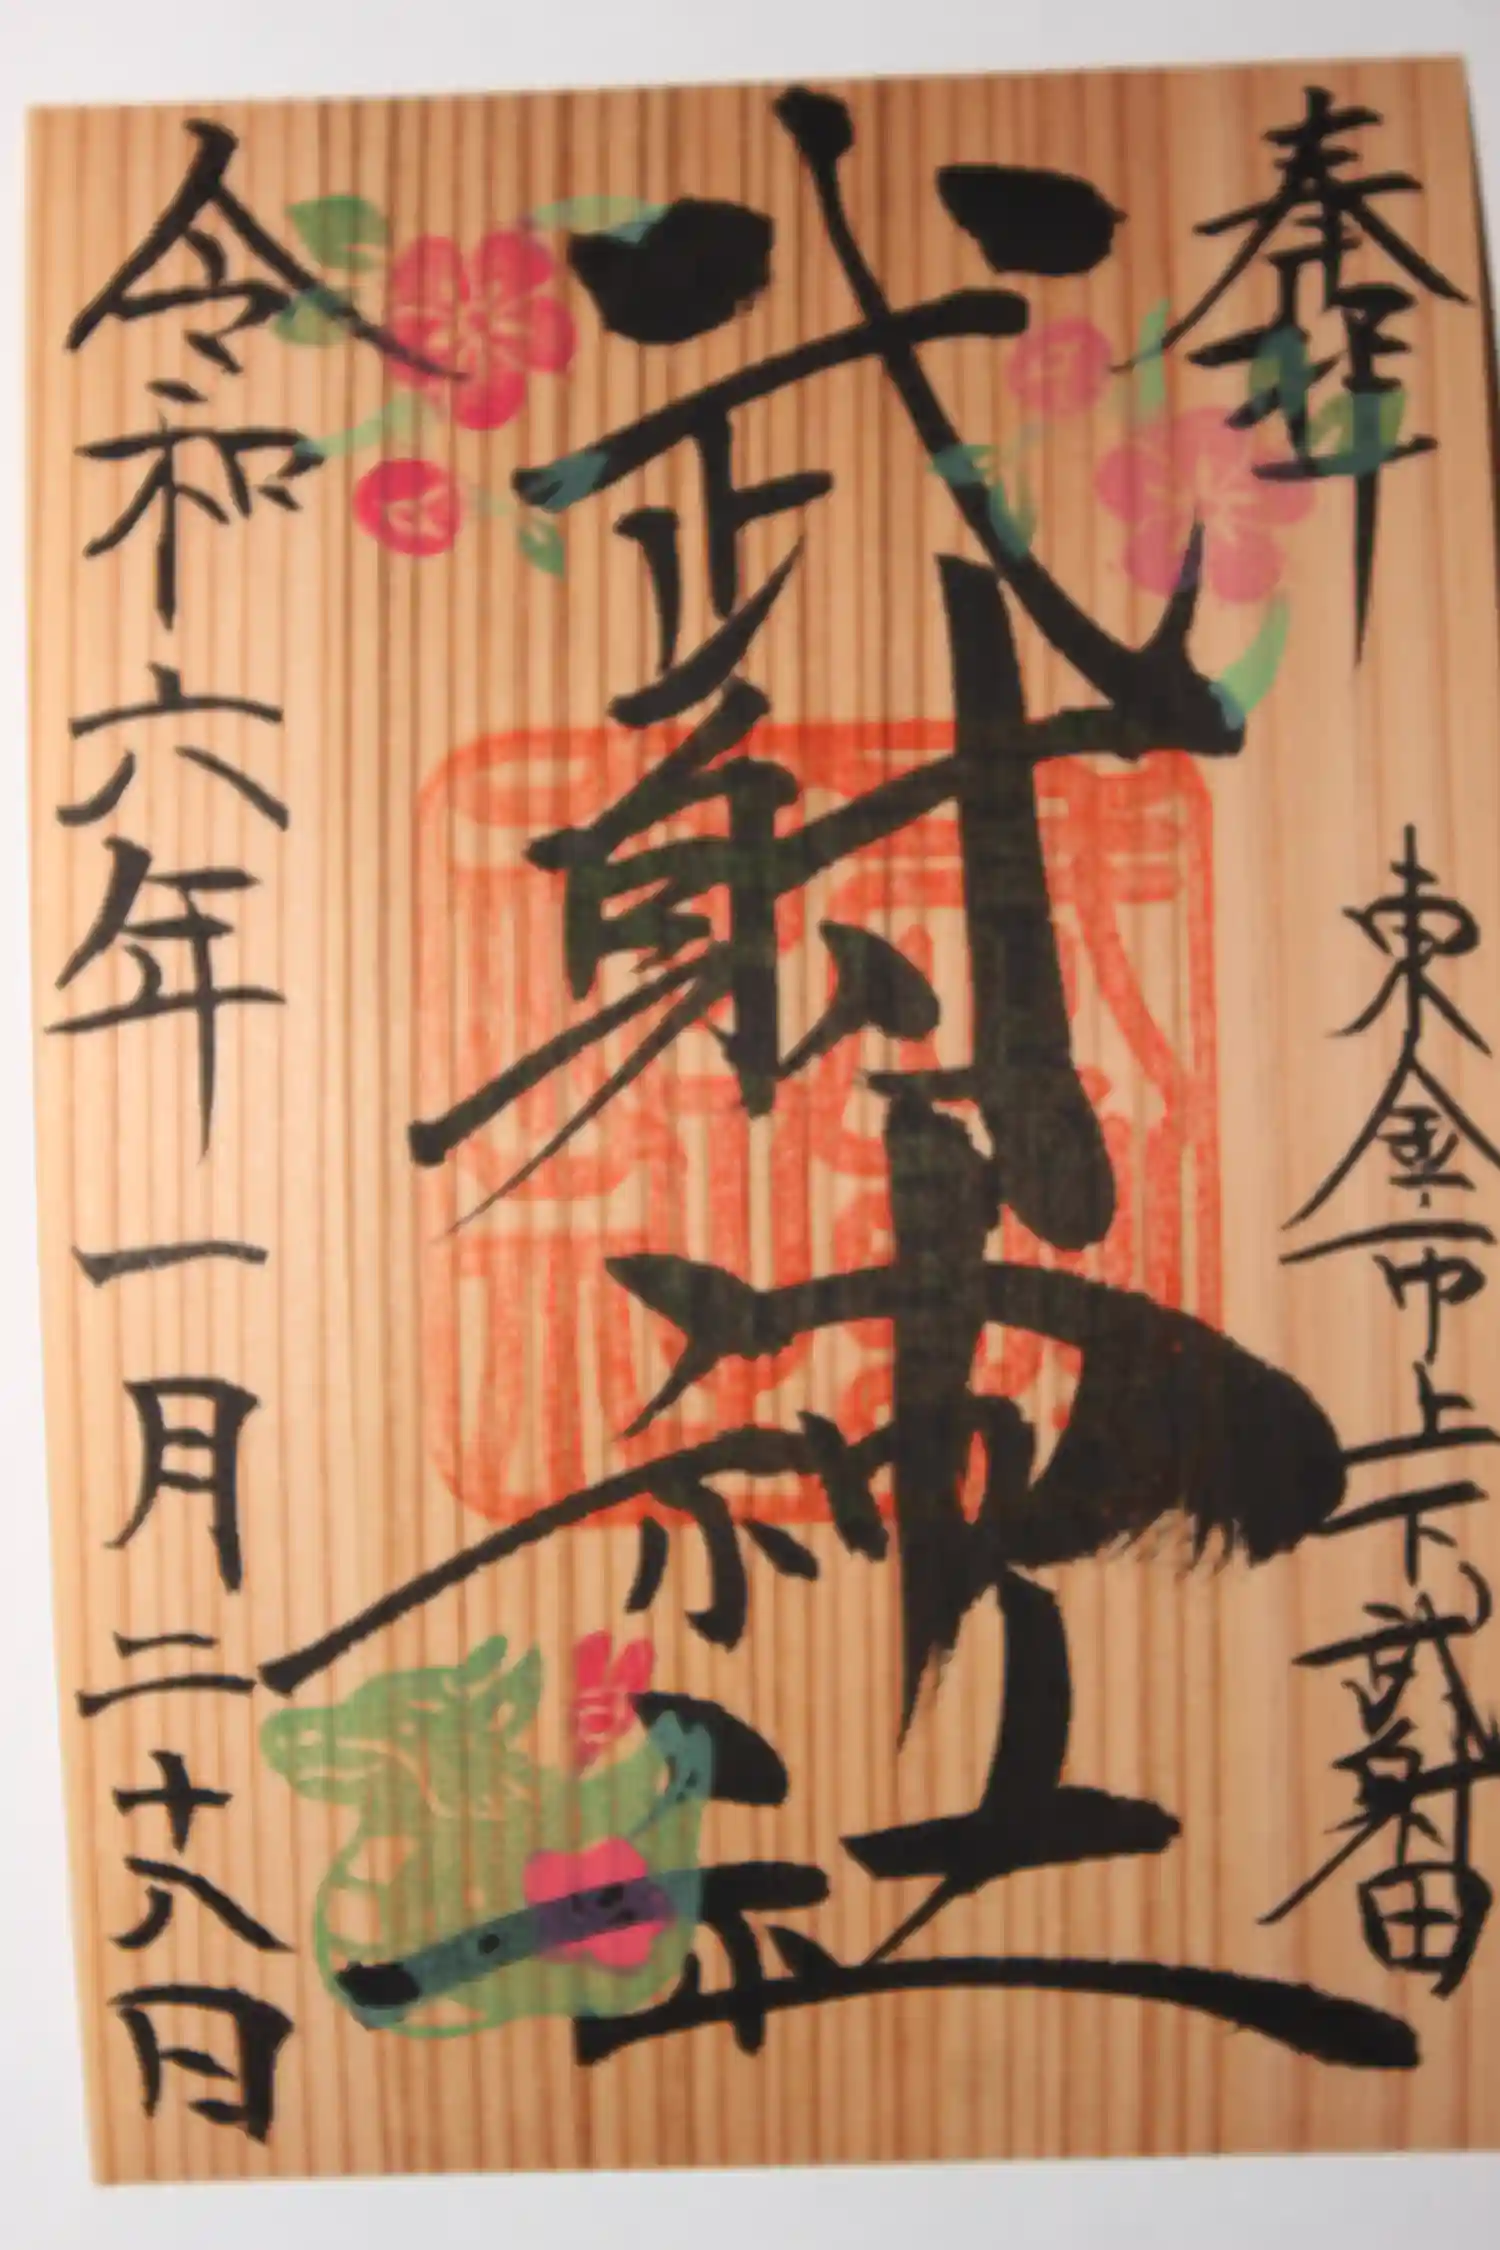 奉拝
東金市上下武射田
武射神社
令和六年一月二十八日